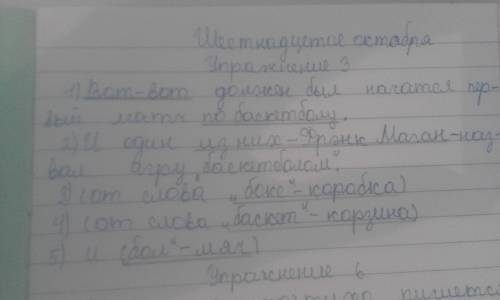 Шестнадцатое октября
Упражнение 3
1) Вот-вот должен был начатся пер-
вый матч по баскетболу.
2) И один из них - Фрэнк Маган - наз-
вал игру „баскетболом".
3) (от слова „бокс" - коробка)
4) (от слова „баскет" - корзина)
5) и („бол" - мяч)
Упражнение 6
пишется